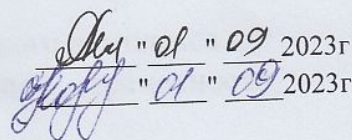 "01" 09 2023г
"01" 09 2023г